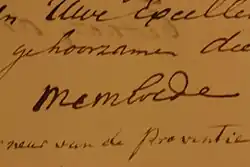 Uwe Excelle
gehoorzamen die
Membrede
neur van de Proventie